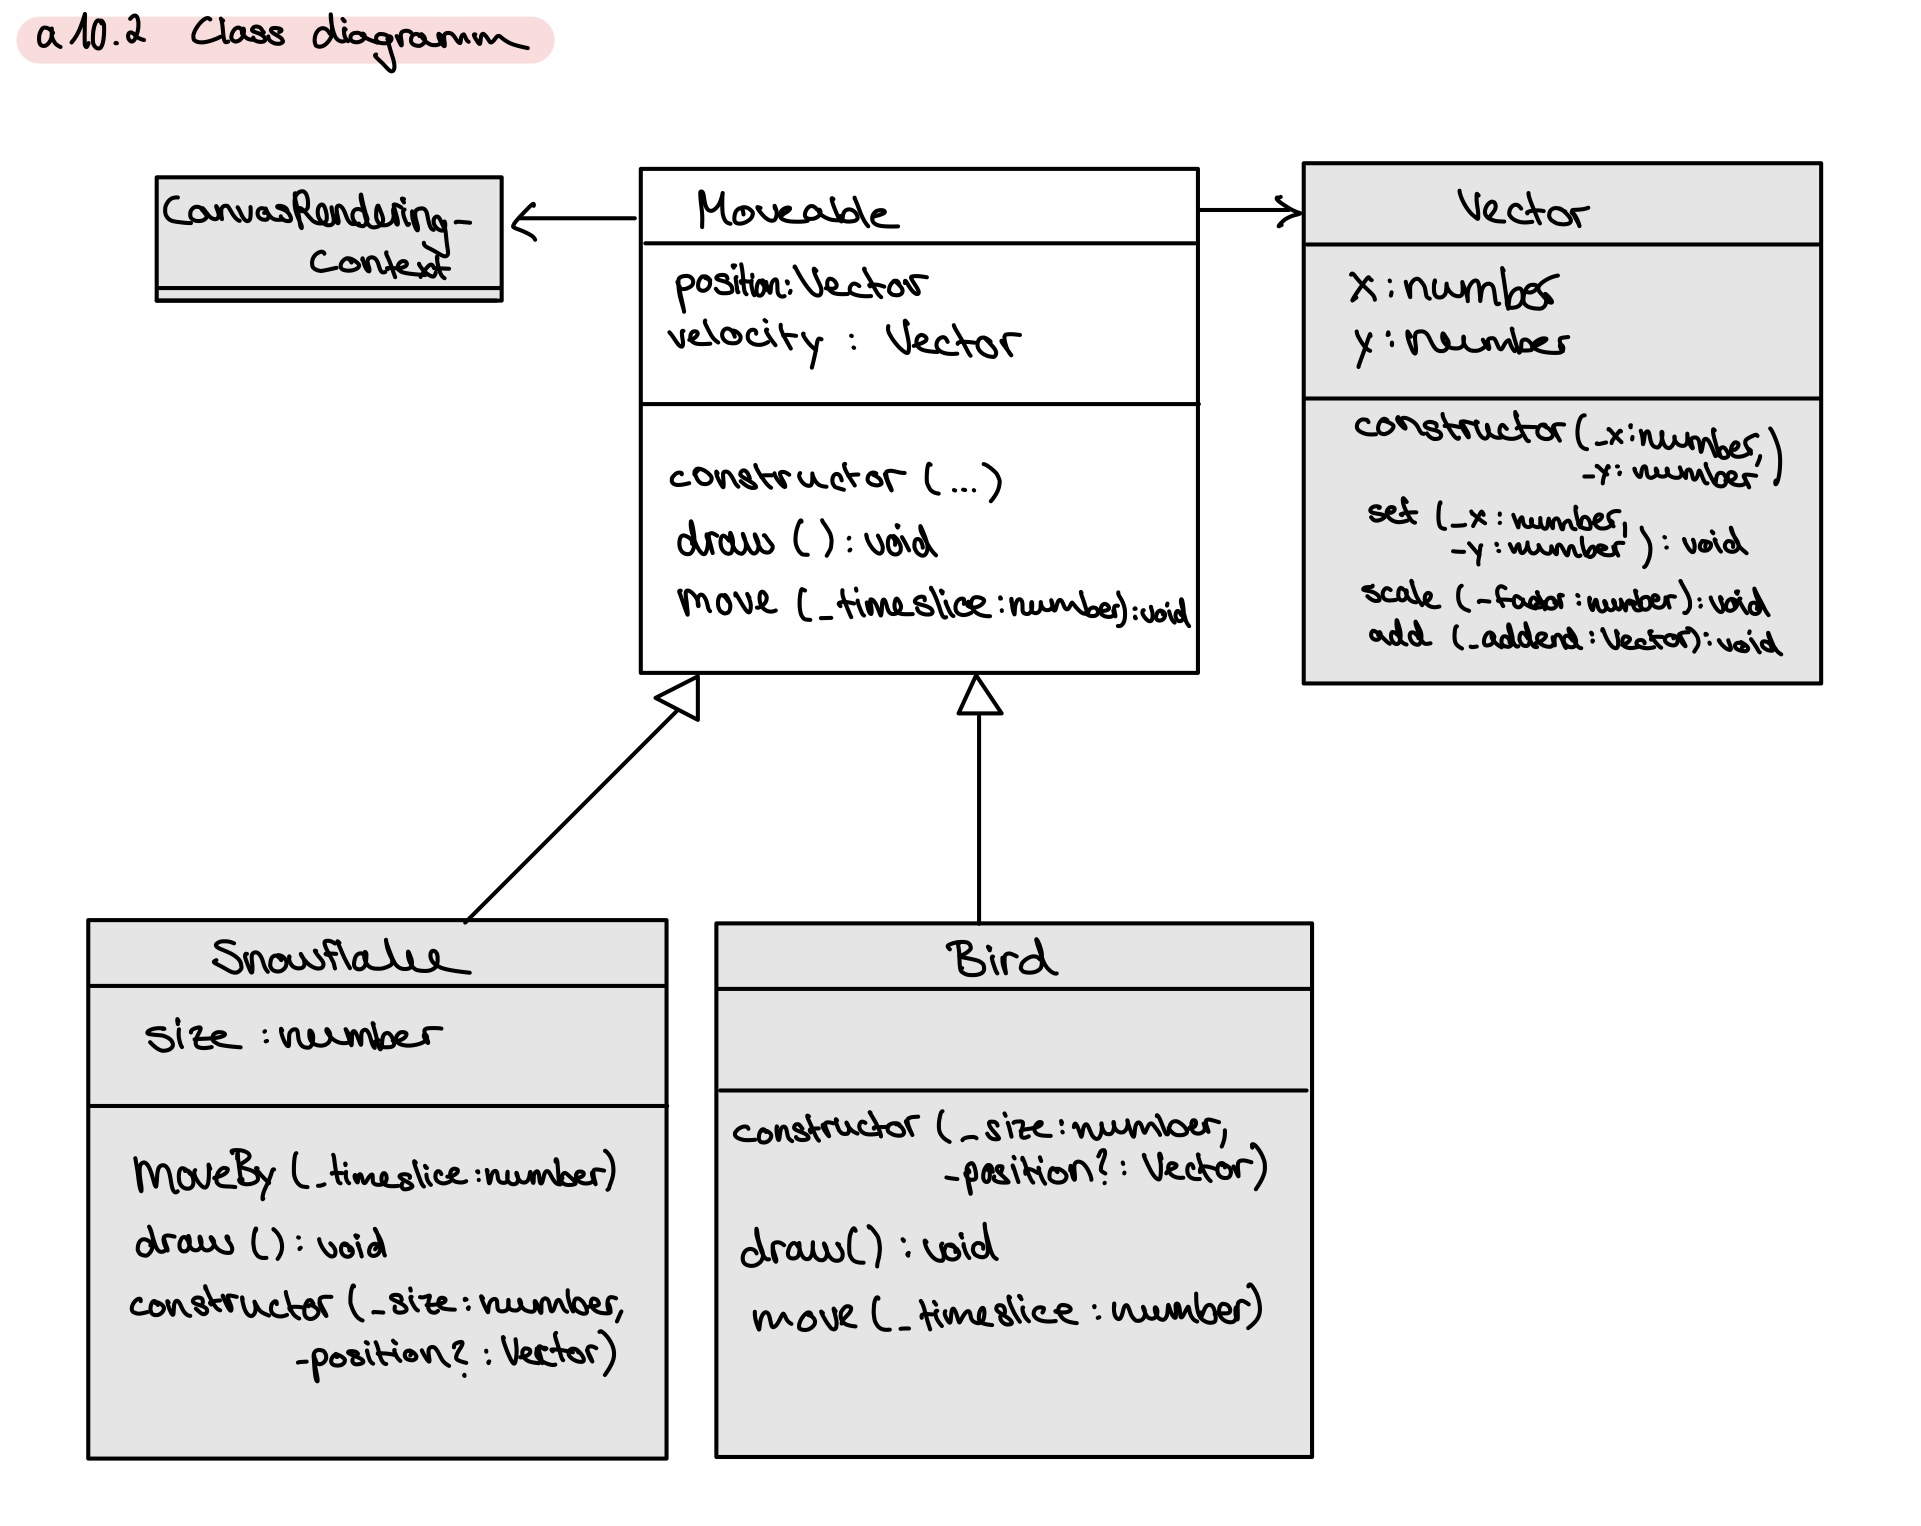 a 10.2 Class diagramm
CanvasRendering-
Context
Moveable
position: Vector
velocity : Vector
constructor (...)
draw () : void
move (_timeslice : number) : void
Vector
x : number
y : number
constructor (_x : number,
_y : number)
set (_x : number,
_y : number) : void
scale (_factor : number) : void
add (_addend : Vector) : void
Snowflake
size : number
MoveBy (_timeslice : number)
draw () : void
constructor (_size : number,
_position? : Vector)
Bird
constructor (_size : number,
_position? : Vector)
draw() : void
move (_timeslice : number)